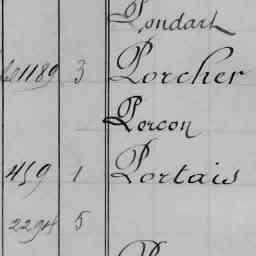 Pondart
1189 3 Porcher
Porcon
459 1 Portais
2294 5